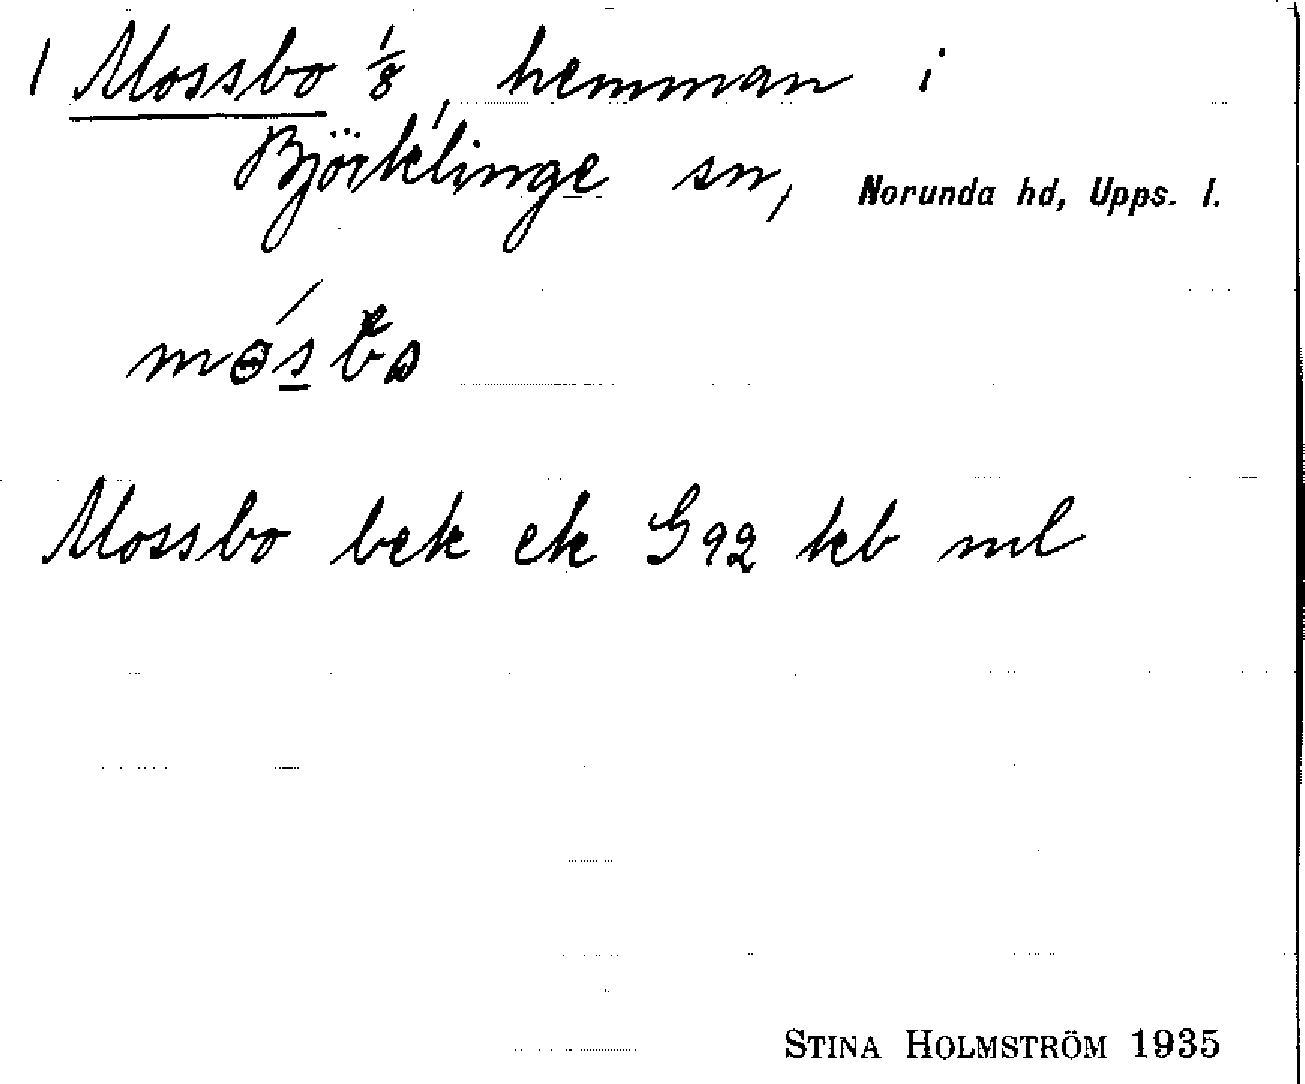 1 Mossbo 1/8, hemman i
Björklinge sn, Norunda hd, Upps. l.
Mossbo bek ek G 92 kb ml
STINA HOLMSTRÖM 1935